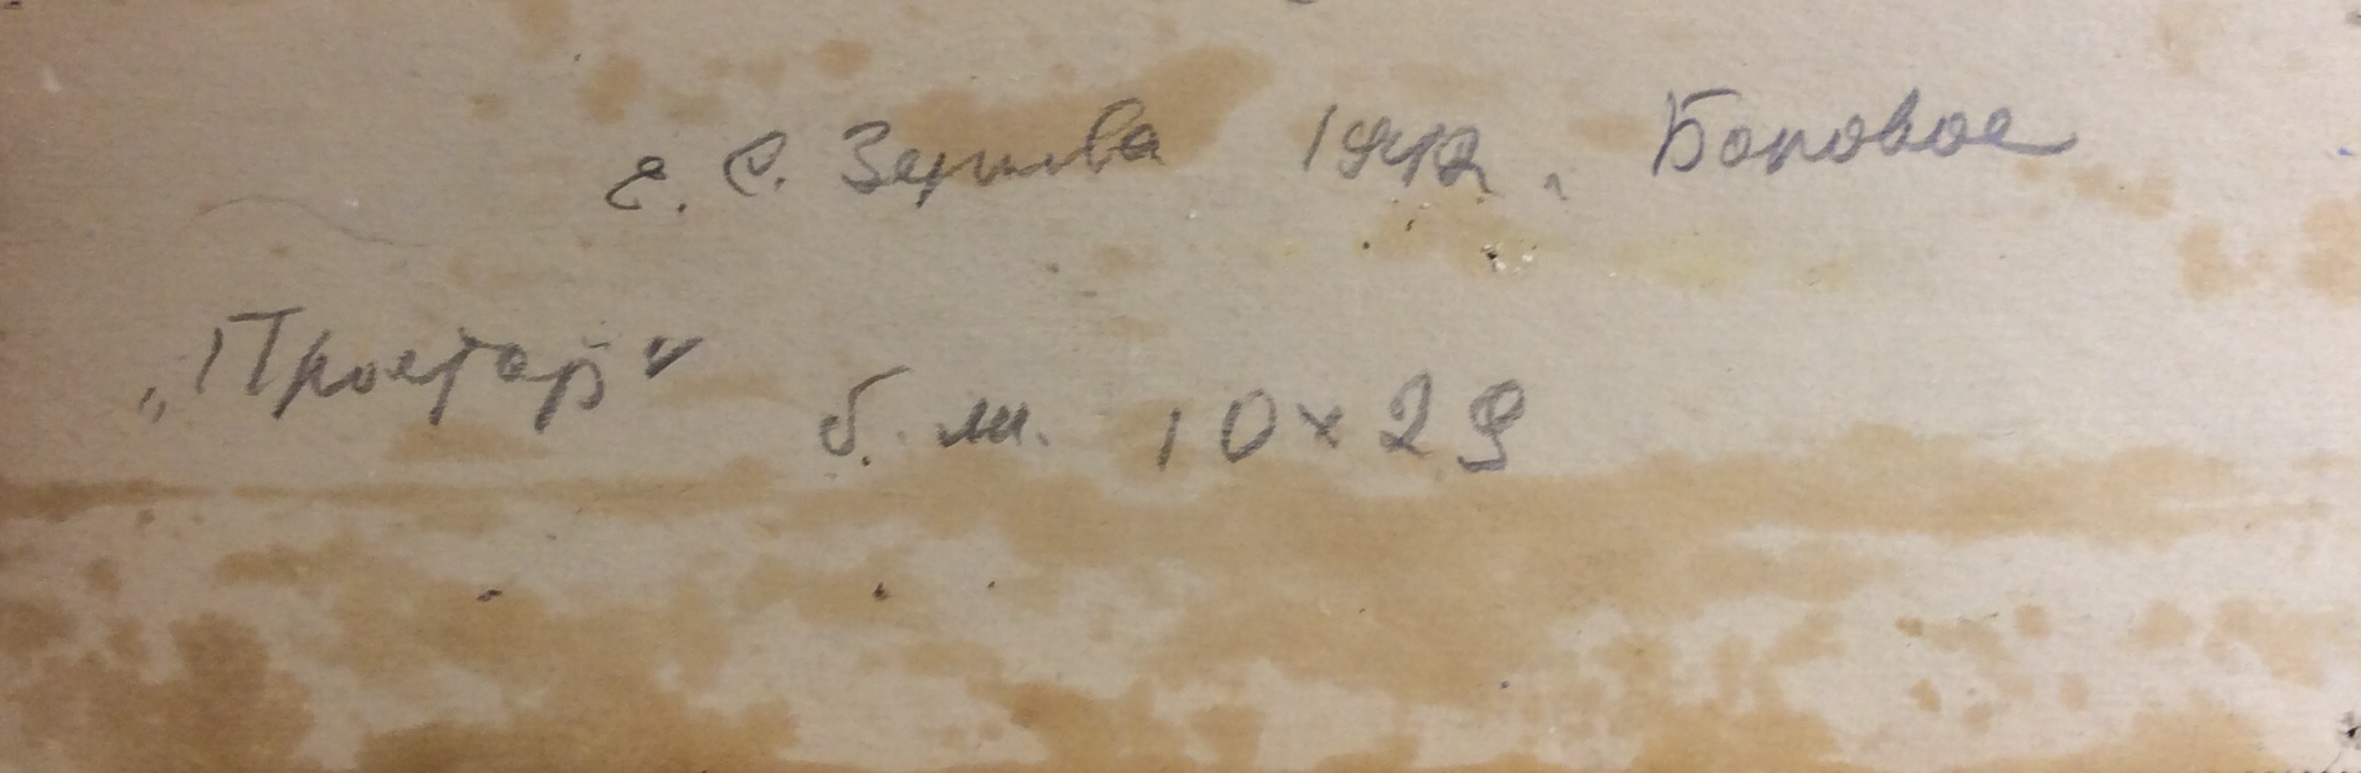 Е. С. Зернова 1942. Боровое
„Простор“ б. м. 10×29